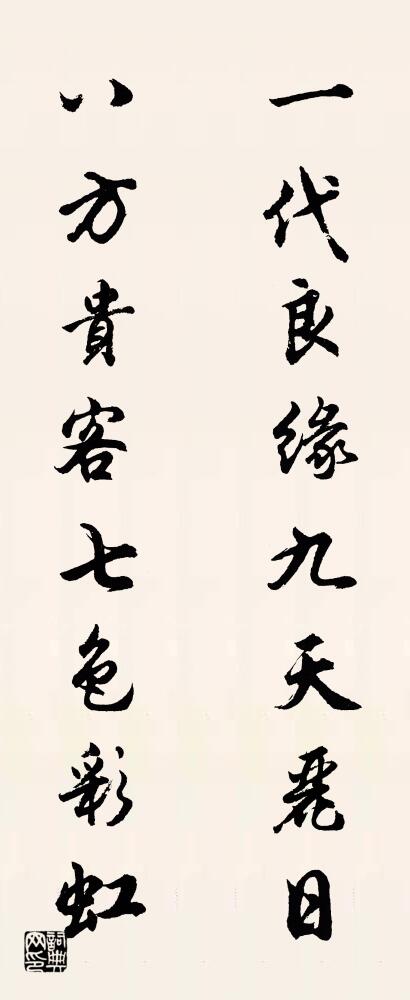 一代良缘九天麗日
八方貴客七色彩虹
詞典网印